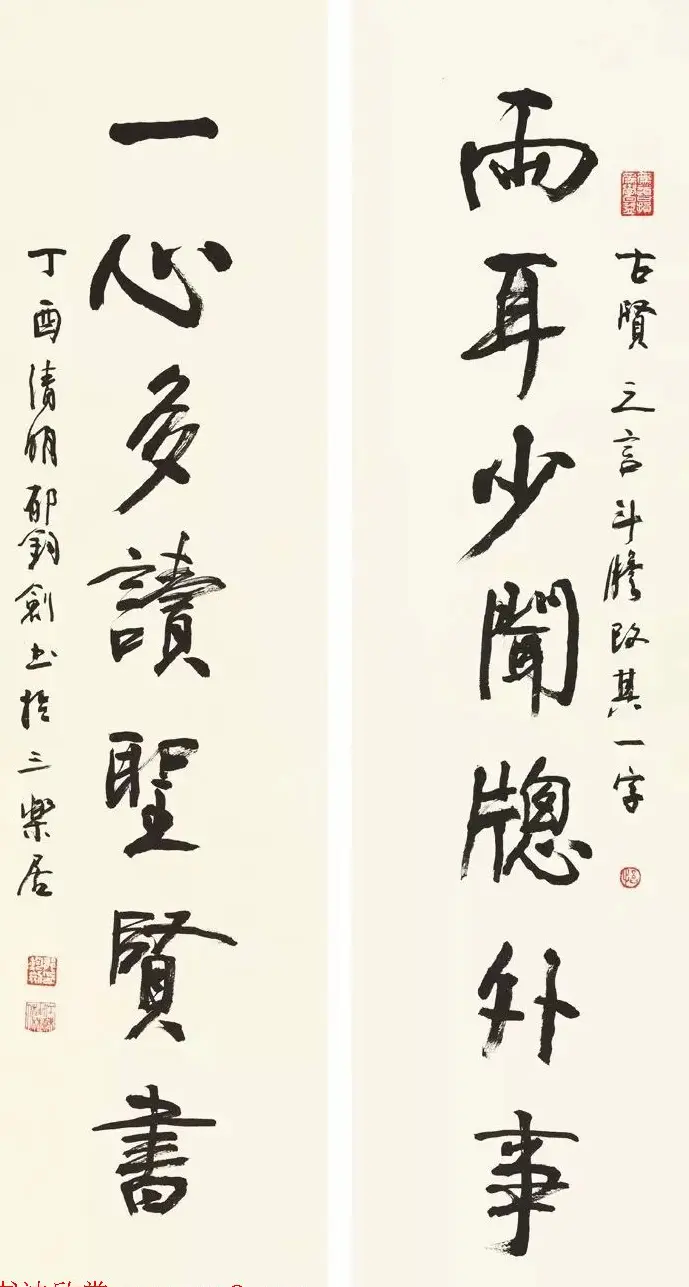 兩耳少聞牕外事
一心多讀聖賢書
古賢之言斗膽改其一字
丁酉清明郁鈞劍书於三樂居